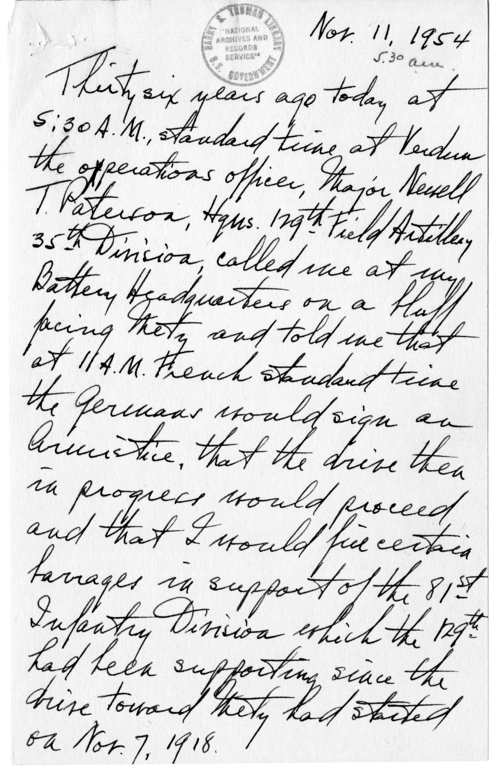 HARRY S. TRUMAN LIBRARY
"NATIONAL
ARCHIVES AND
RECORDS
SERVICE"
U.S. GOVERNMENT
Nov. 11, 1954
5:30 a.m.
Thirty six years ago today at
5:30 A.M., standard time at Verdun
the operations officer, Major Newell
T. Paterson, Hqus. 129th Field Artillery
35th Division, called me at my
Battery Headquarters on a bluff
facing Metz and told me that
at 11 A.M. French standard time
the Germans would sign an
Armistice, that the drive then
in progress would proceed
and that I would fire certain
barrages in support of the 81st
Infantry Division which the 129th
had been supporting since the
drive toward Metz had started
on Nov. 7, 1918.